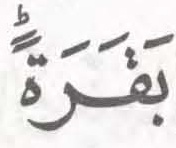 بَقَرَةً